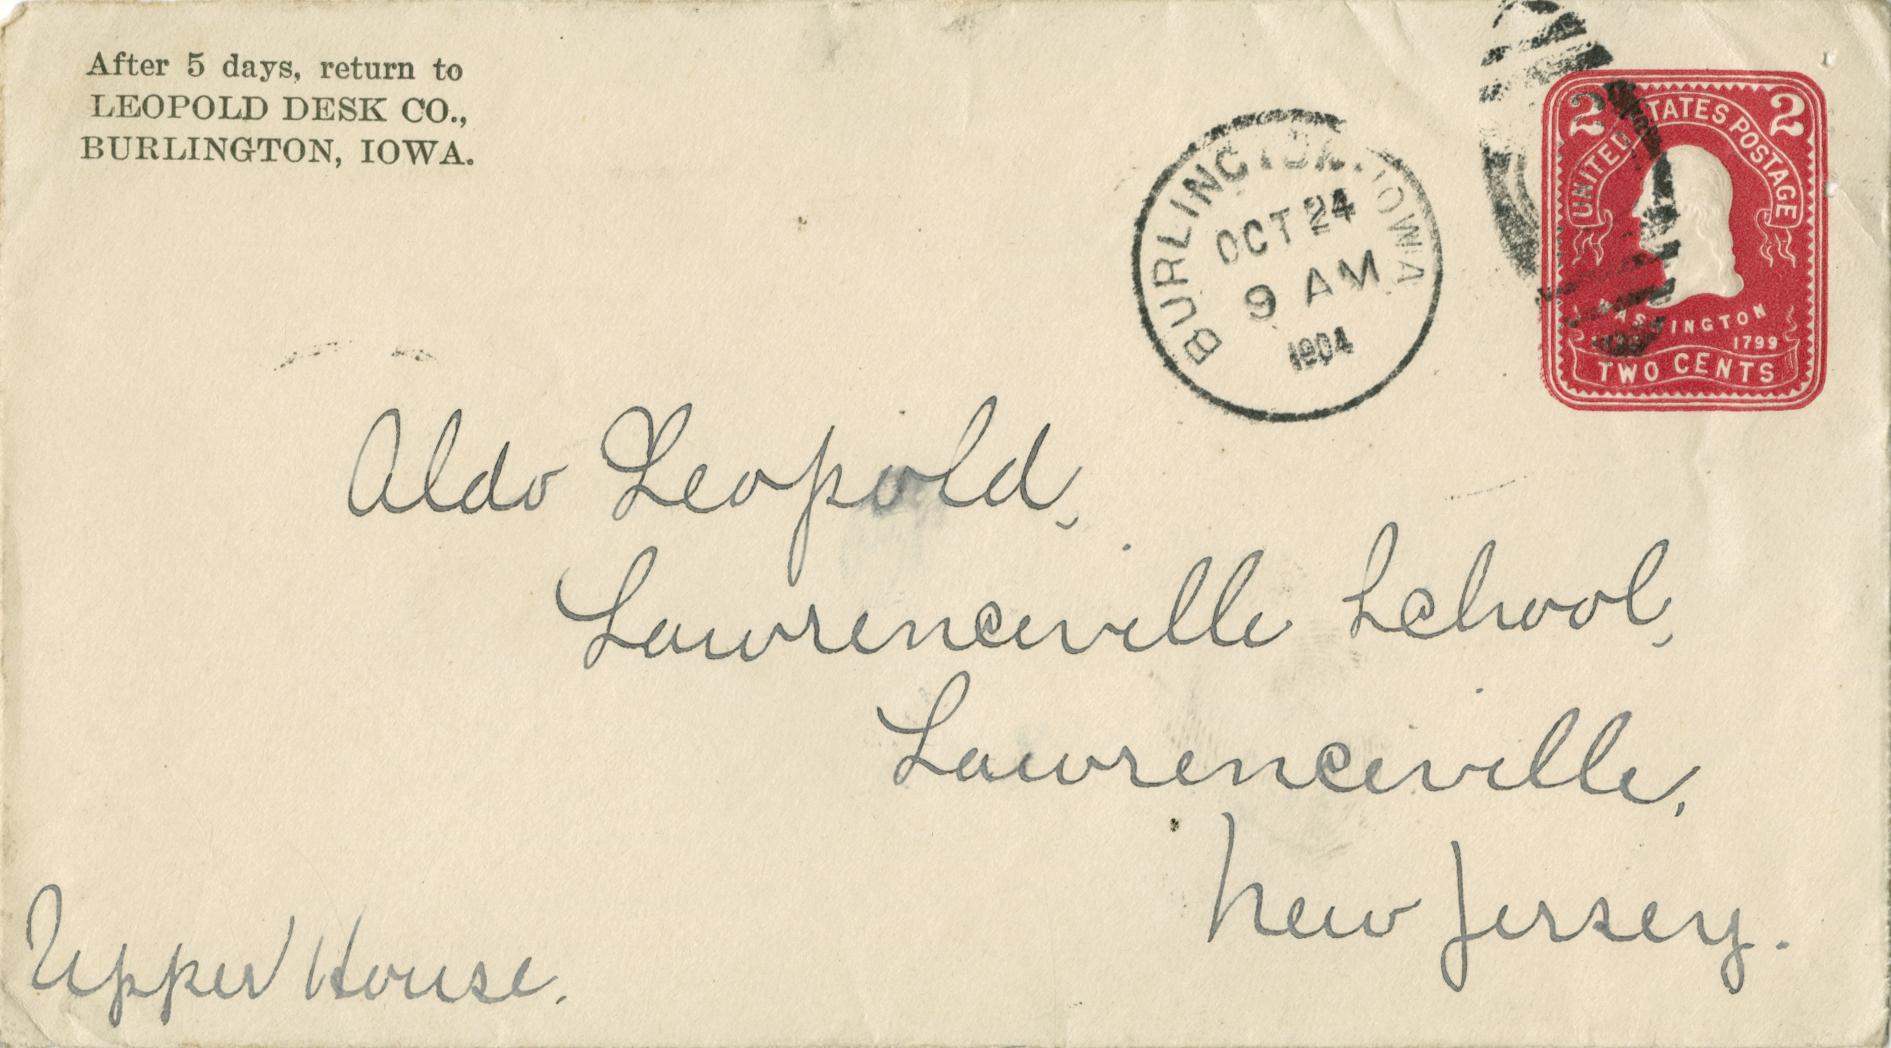 After 5 days, return to
LEOPOLD DESK CO.,
BURLINGTON, IOWA.
BURLINGTON, IOWA
OCT 24
9 AM
1904
2 2
UNITED STATES POSTAGE
WASHINGTON
1799
TWO CENTS
Aldo Leopold,
Lawrenceville School,
Lawrenceville,
New Jersey.
Upper House.